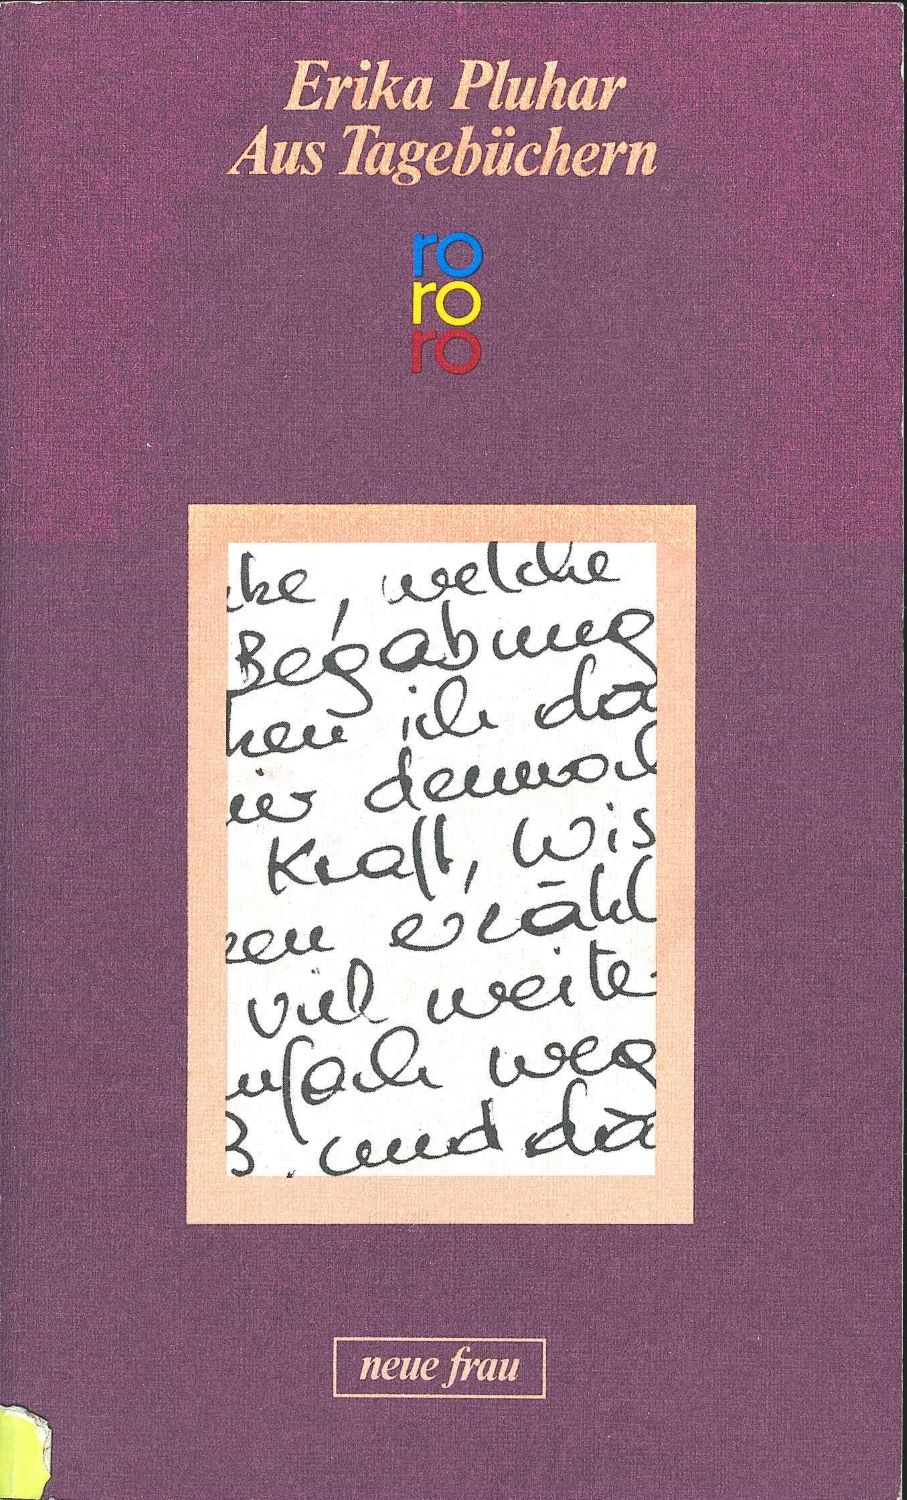 Erika Pluhar
Aus Tagebüchern
ro
ro
ro
ke, welche
Begabung
hen ich da
ier dennoch
Kraft, Wis
zen erzähl
viel weite
nfach weg
ß. und da
neue frau